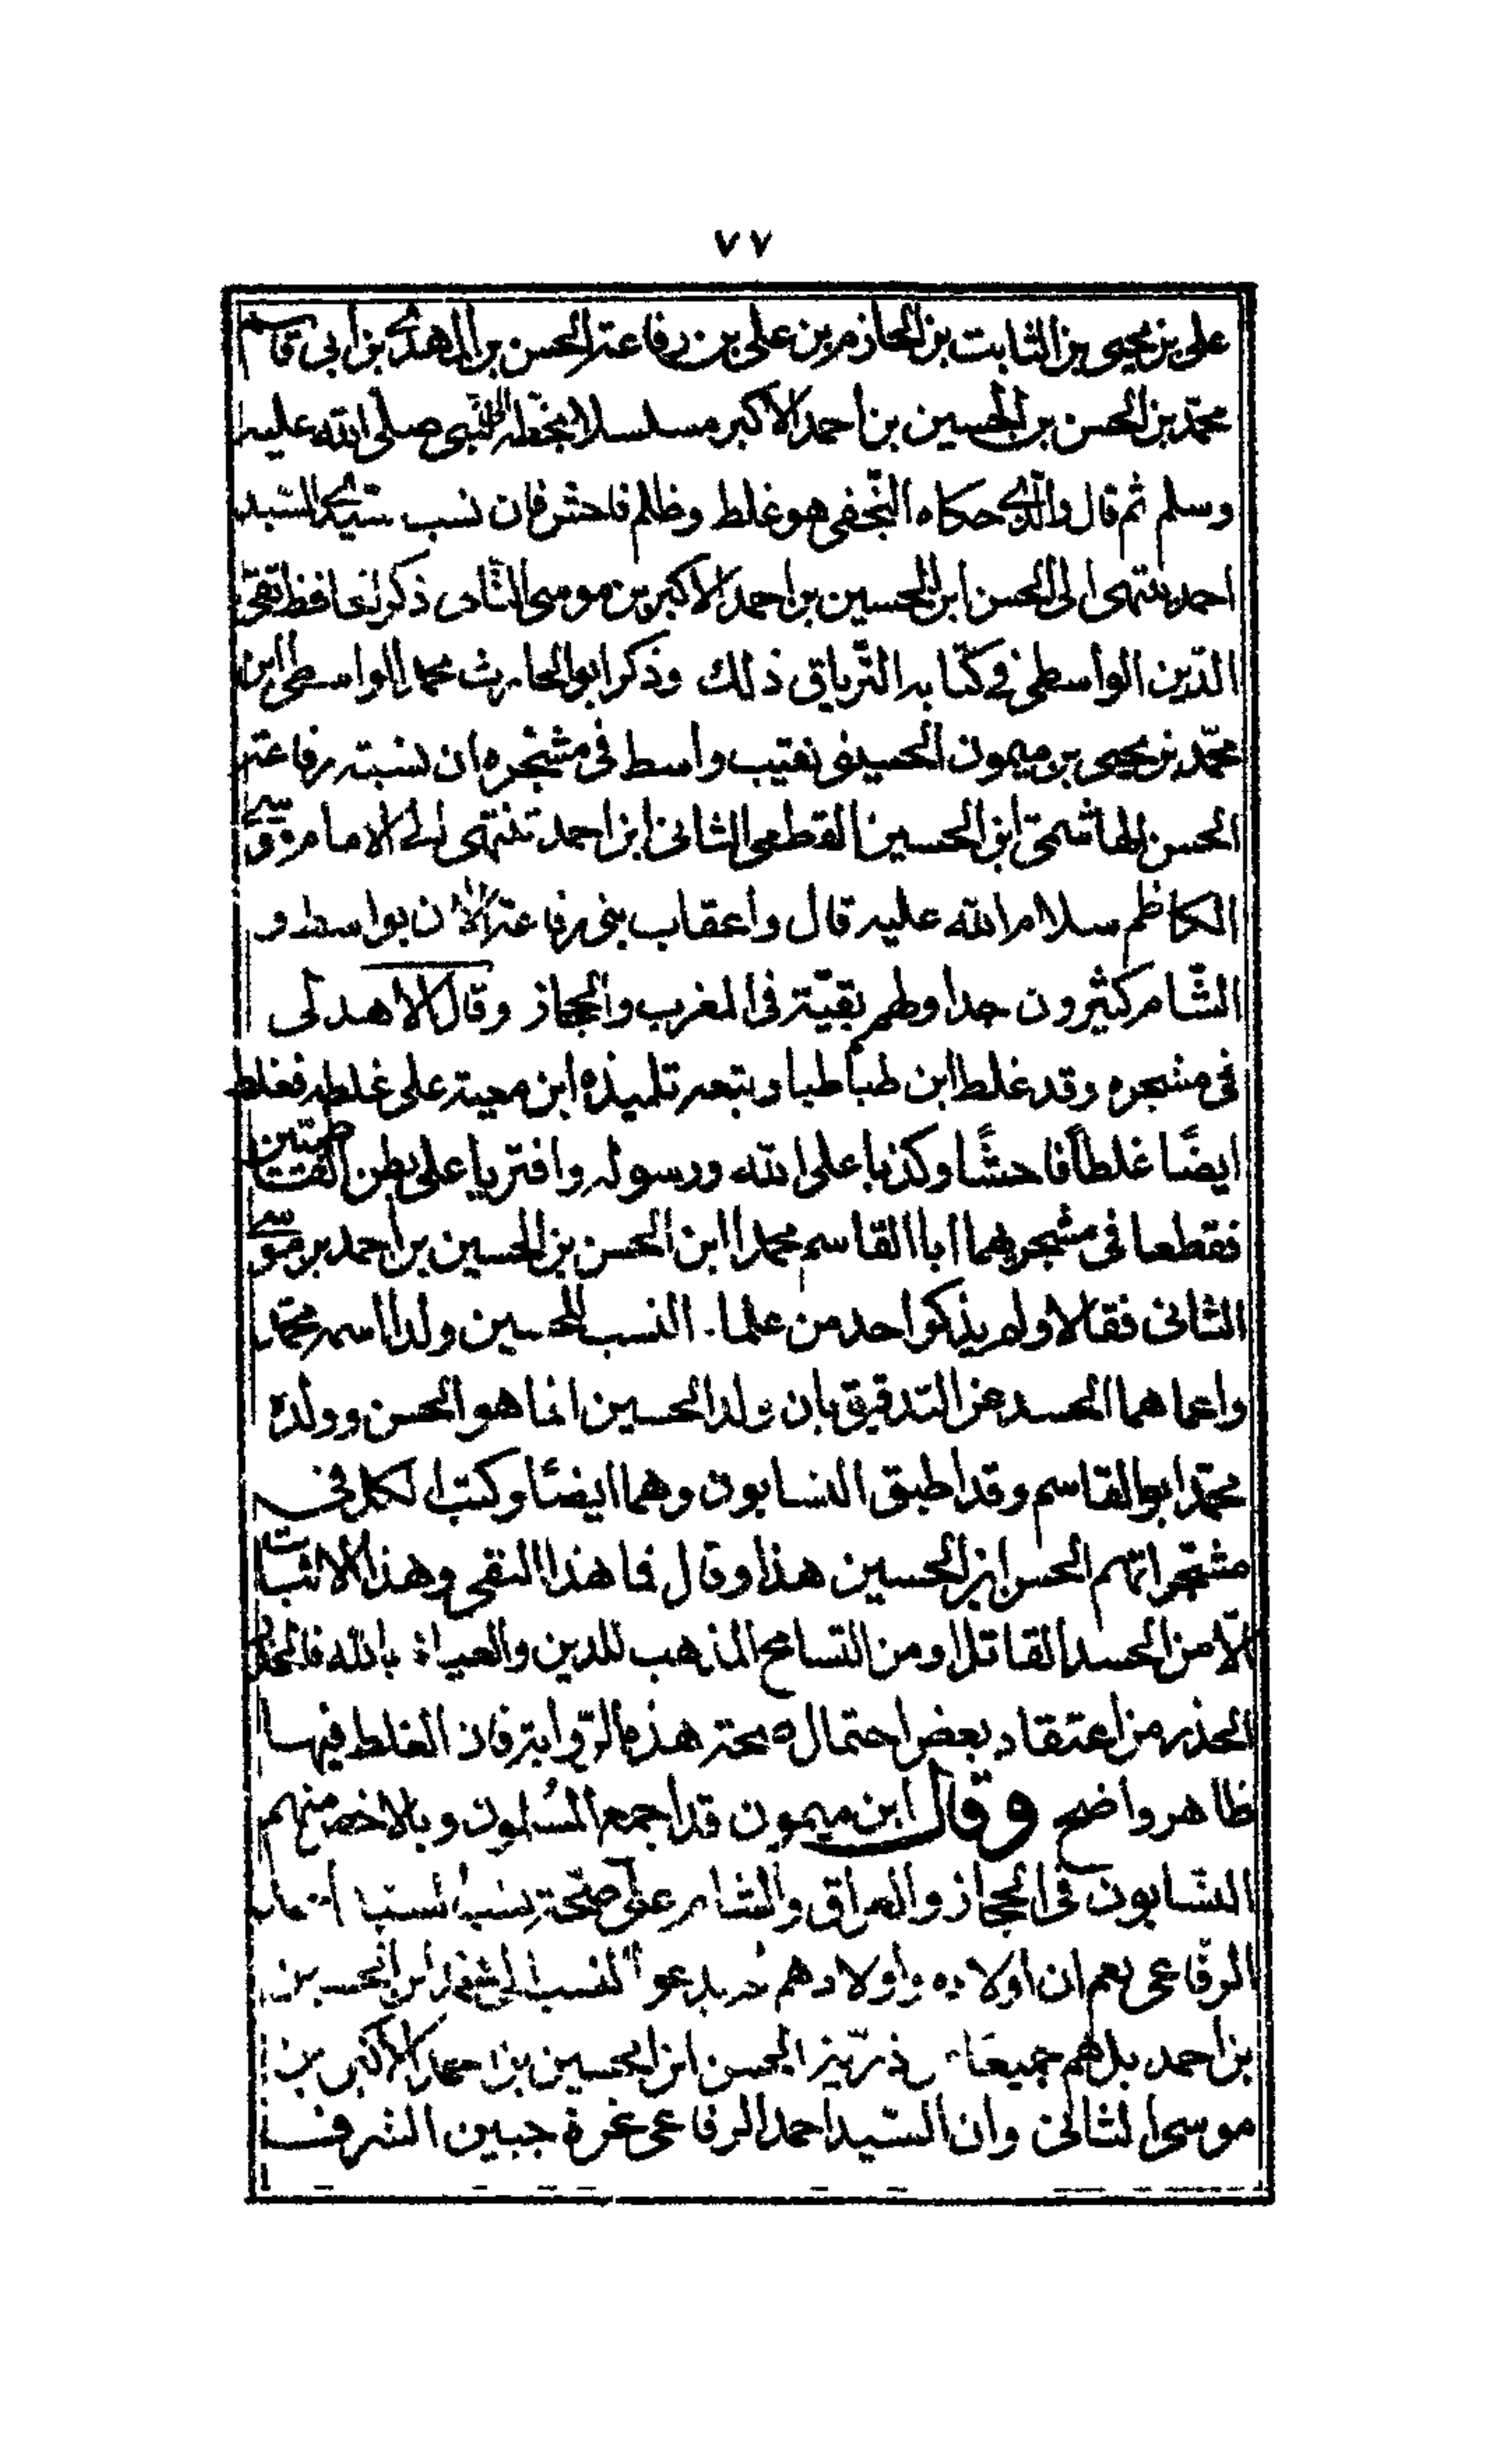 ٧٧
على بن يحيى بن الثابت بن الحازم بن على بن رفاعة الحسن بن المهدى بن ابى قاسم
محمّد بن الحسن بن الحسين بن احمد الاكبر مسلسلا بخطه الى النبى صلى الله عليه
وسلم ثم قال والّذى حكاه النّجفى هو غلط وظلم فاحش فان نسب سيّدى السّيد
احمد ينتهى الى الحسن ابن الحسين بن احمد الاكبر بن موسى الثّانى ذكر الحافظ تقى
الدّين الواسطى فى كتابه التّرياق ذلك وذكر ابو الحارث محمد الواسطى ابن
محمّد بن يحيى بن ميمون الحسينى نقيب واسط فى مشجره ان نسبة رفاعة
الحسن الهاشمىّ ابن الحسين القطعى الثانى ابن احمد تنتهى الى الامام موسى
الكاظم سلام الله عليه قال واعقاب بنى رفاعة الآن بواسط و
الشّام كثيرون جدا ولهم بقيّة فى المغرب والحجاز وقال الاهدلى
فى مشجره وقد غلط ابن طباطبا وتبعه تلميذه ابن معية على غلطه فغلط
ايضًا غلطاً فاحشًا وكذبا على الله ورسوله وافتريا على بطن الفاطميّين
فقطعا فى مشجريهما ابا القاسم محمدا ابن الحسن بن الحسين بن احمد بن موسى
الثانى فقالا ولم يذكر احد من علماء النسب للحسين ولدا اسمه محمّد
واعماهما الحسد عن التدقيق بان ولد الحسين انما هو الحسن وولده
محمّد ابو القاسم وقد اطبق النسابون وهما ايضًا وكتب الكل فى
مشجّراتهم الحسن ابن الحسين هذا وقال فما هذا النفى وهذا الاثبات
الّا من الحسد القاتل او من التسامح المذهب للدين والعياذ بالله فالحذر
الحذر من اعتقاد بعض احتمال صحة هذه الرّواية فان الغلط فيها
ظاهر واضح وقال ابن ميمون قد اجمع المُسلمون وبالاخص منهم
النسّابون فى الحجاز والعراق والشام على صحّة نسب السيد احمد
الرّفاعى نعم ان اولاده واولادهم لم يدعوا النسب الى ابن الحسين
بن احمد بل هم جميعًا من ذرّية الحسن ابن الحسين بن احمد الاكبر بن
موسى الثانى وان السّيد احمد الرفاعى غرة جبين الشرف